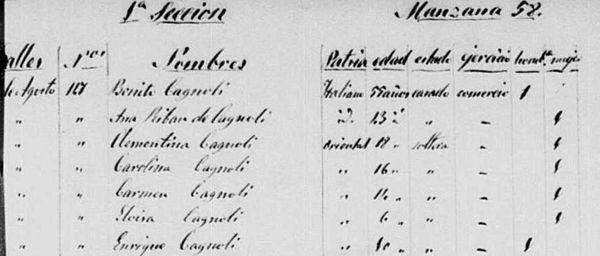 1ª Seccion Manzana 58.
Calles Nos Nombres Patria edad estado ejercicio homb. muj
de Agosto 127 Benito Cagnoli Italiano 55 años casado comercio 1
" " Ana de Cagnoli id. " " - 1
" " Clementina Cagnoli oriental 18 " soltera - 1
" " Carolina Cagnoli " 16 " " - 1
" " Carmen Cagnoli " 14 " " - 1
" " Cagnoli " 6 " " - 1
" " Enrique Cagnoli " 10 " " - 1